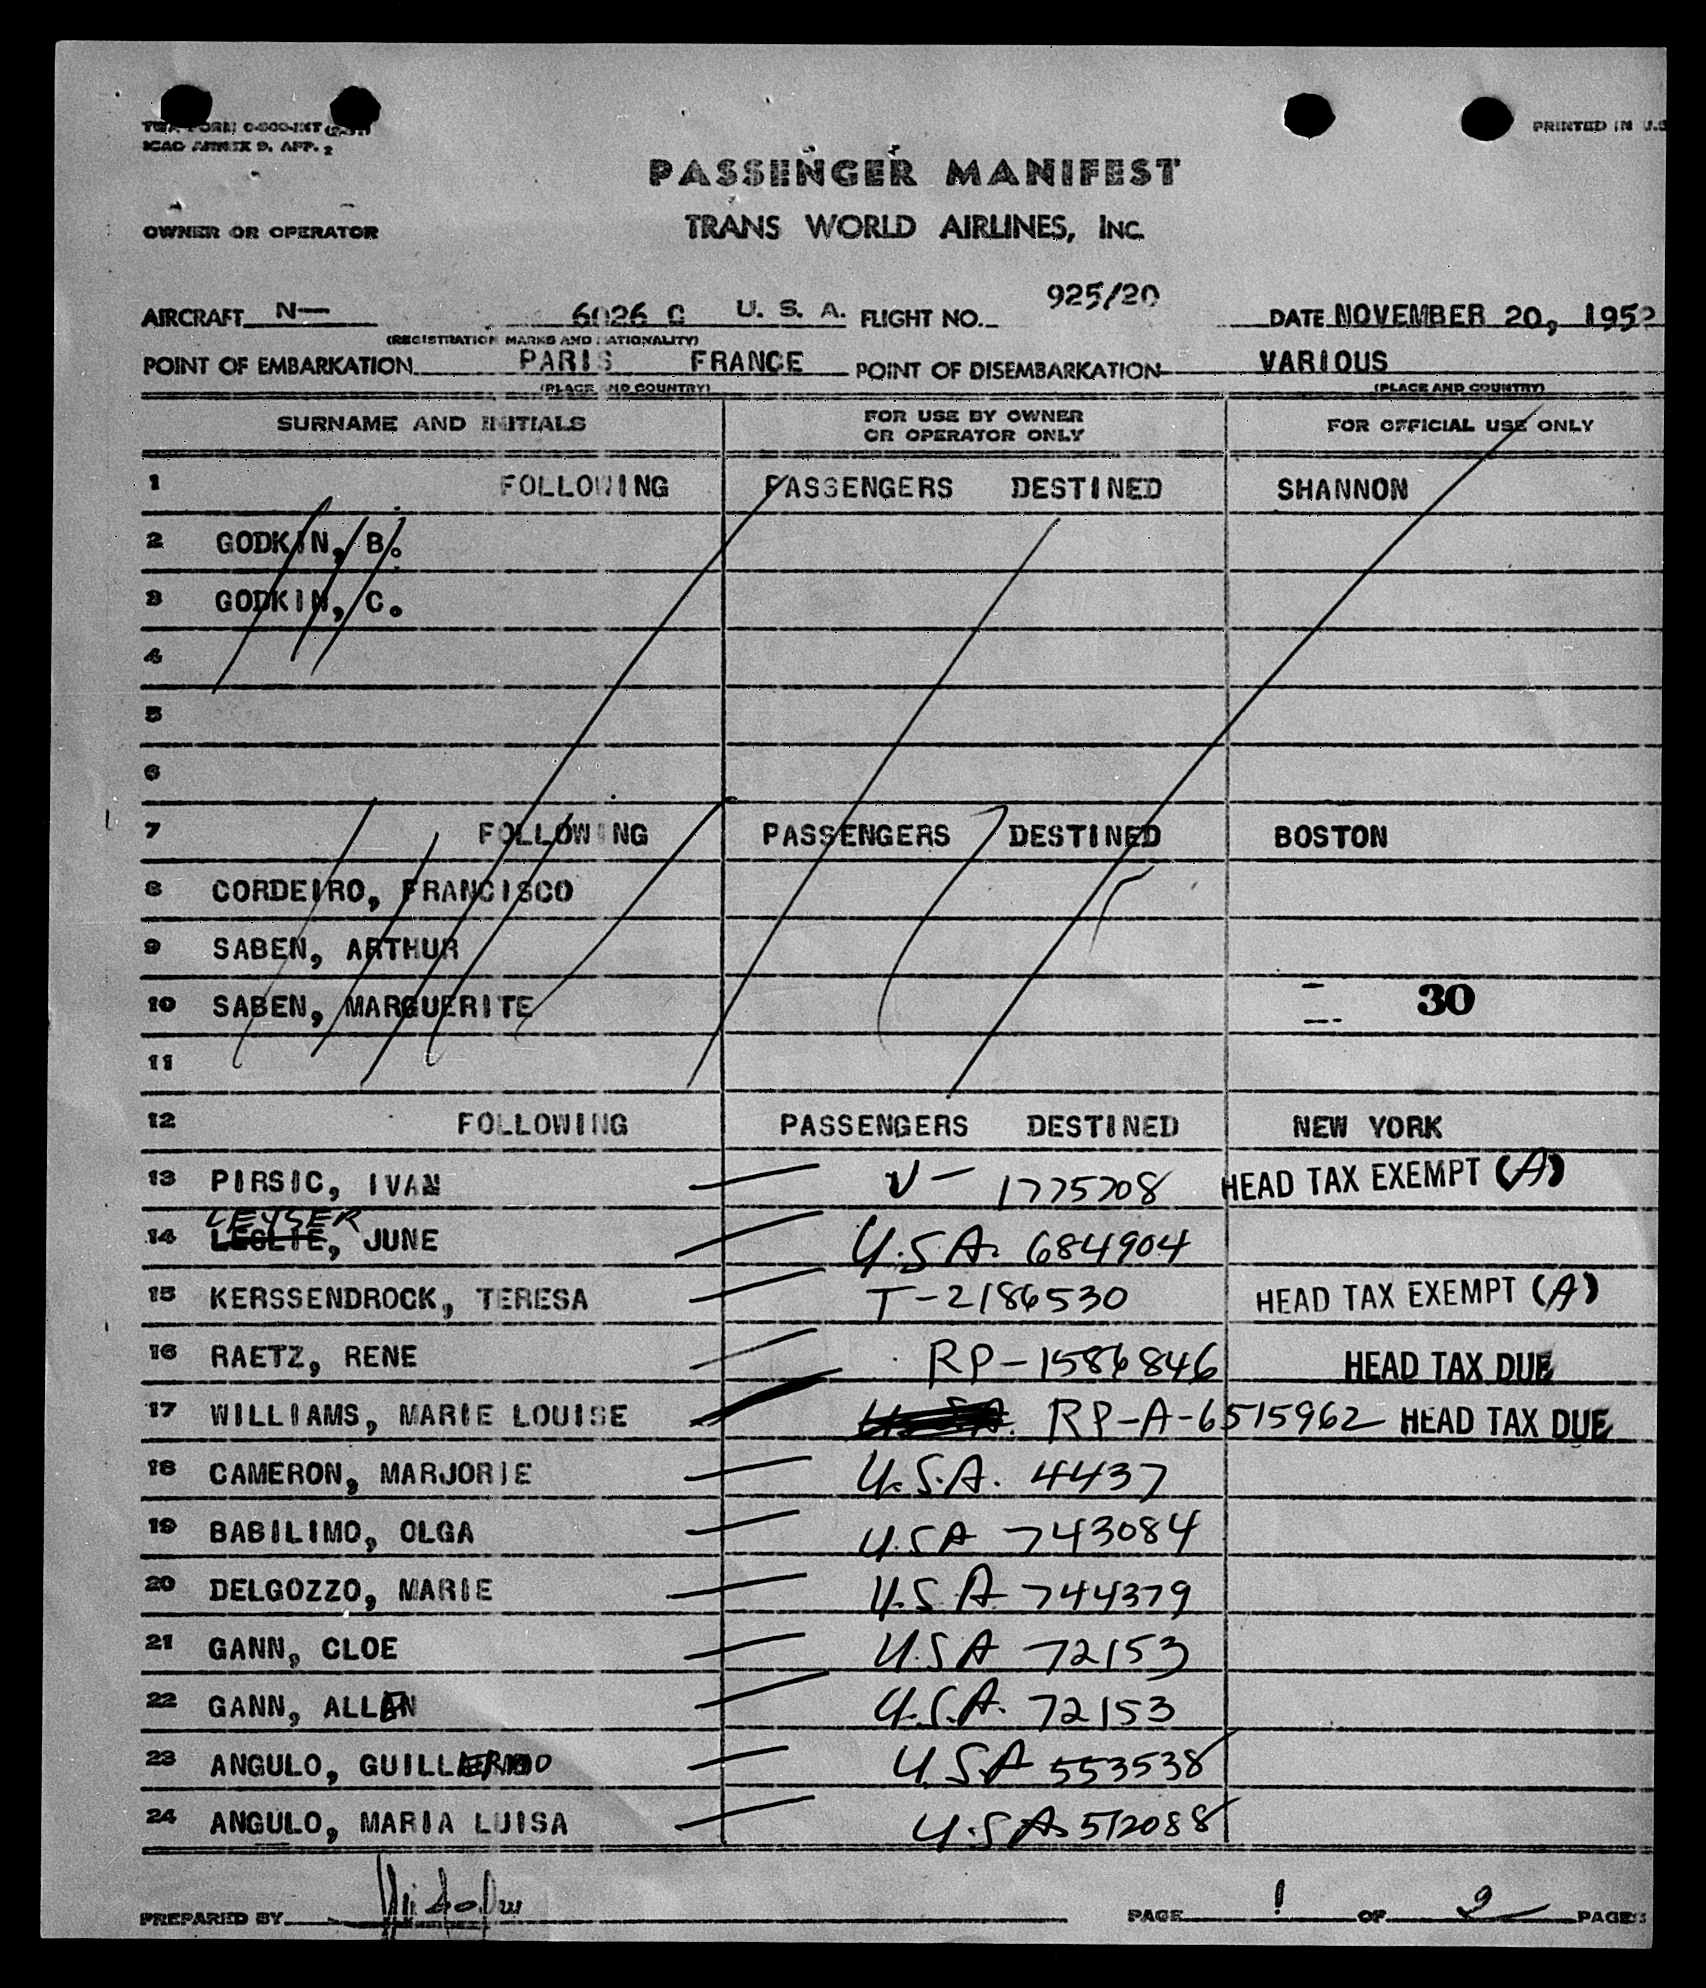 TWA FORM C-500-INT (2-51)
ICAO ANNEX 9. APP. 2
PRINTED IN U.S
PASSENGER MANIFEST
OWNER OR OPERATOR
TRANS WORLD AIRLINES, INC.
AIRCRAFT N— 6026 C U. S. A. FLIGHT NO. 925/20 DATE NOVEMBER 20, 1952
(REGISTRATION MARKS AND NATIONALITY)
POINT OF EMBARKATION PARIS FRANCE POINT OF DISEMBARKATION VARIOUS
(PLACE AND COUNTRY) (PLACE AND COUNTRY)
SURNAME AND INITIALS FOR USE BY OWNER OR OPERATOR ONLY FOR OFFICIAL USE ONLY
1 FOLLOWING PASSENGERS DESTINED SHANNON
2 GODKIN, B.
3 GODKIN, C.
4
5
6
7 FOLLOWING PASSENGERS DESTINED BOSTON
8 CORDEIRO, FRANCISCO
9 SABEN, ARTHUR
10 SABEN, MARGUERITE 30
11
12 FOLLOWING PASSENGERS DESTINED NEW YORK
13 PIRSIC, IVAN V- 1775708 HEAD TAX EXEMPT (A)
LEYSER
14 LESLIE, JUNE U.S.A. 684904
15 KERSSENDROCK, TERESA T-2186530 HEAD TAX EXEMPT (A)
16 RAETZ, RENE RP-1586846 HEAD TAX DUE
17 WILLIAMS, MARIE LOUISE U.S.A. RP-A-6515962 HEAD TAX DUE
18 CAMERON, MARJORIE U.S.A. 4437
19 BABILIMO, OLGA U.S.A 743084
20 DELGOZZO, MARIE U.S.A 744379
21 GANN, CLOE U.S.A 72153
22 GANN, ALLEN U.S.A. 72153
23 ANGULO, GUILLERMO U.S.A 553538
24 ANGULO, MARIA LUISA U.S.A. 512088
PREPARED BY PAGE 1 OF 2 PAGES